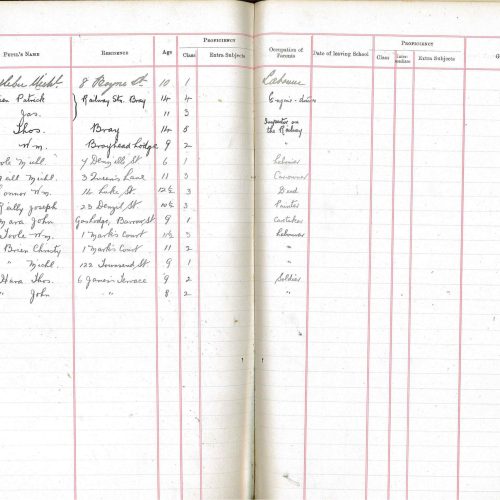 PROFICIENCY PROFICIENCY
PUPIL'S NAME RESIDENCE Age Class Extra Subjects Occupation of Parents Date of leaving School Class Extra Subjects
8 Boyne St. 10 1 Labourer
Patrick Railway Stn. Bray 14 4 Engine-driver
Jas. 11 3
Thos. Bray 14 5 Inspector on the Railway
Wm. Brayhead Lodge 9 2 "
Michl. 4 Denzille St 6 1 Labourer
Michl. 3 Queen's Lane 11 3
Connor Wm. 14 Luke St. 12½ 3 Dead
Reilly Joseph 23 Denzil St. 10½ 3 Painter
Mara John Gaslodge, Barrow St. 9 1 Caretaker
Toole Wm. 1 Mark's Court 11½ 3 Labourer
Brien Christy 1 Mark's Court 11 2 "
" Michl. 122 Townsend St 9 1 "
Hara Thos. 6 James's Terrace 9 2 Soldier
" John " 8 2 "